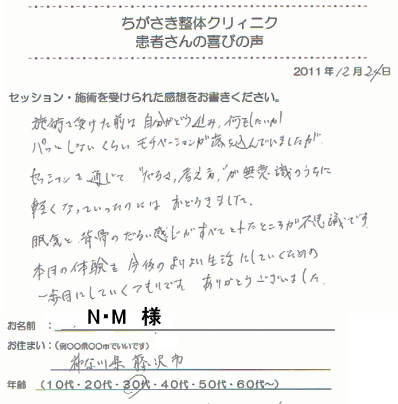 ちがさき整体クリィニク
患者さんの喜びの声
2011年12月24日
セッション・施術を受けられた感想をお書きください。
施術を受けた前は自分がどう止み、何をしたいか
パッとしないくらいモチベーションが落ち込んでいましたが、
セッションを通じて"だるさ、考え方"が無意識のうちに
軽くなっていったのにはおどろきました。
眠気と背骨のだるい感じがすべてとれたところが不思議です
本日の体験を今後のよりよい生活にしていくための
一歩目にしていくつもりです ありがとうございました。
お名前 : N・M 様
お住まい:(例○○県○○市でいいです)
神奈川県藤沢市
年齢 (10代・20代・30代・40代・50代・60代～)